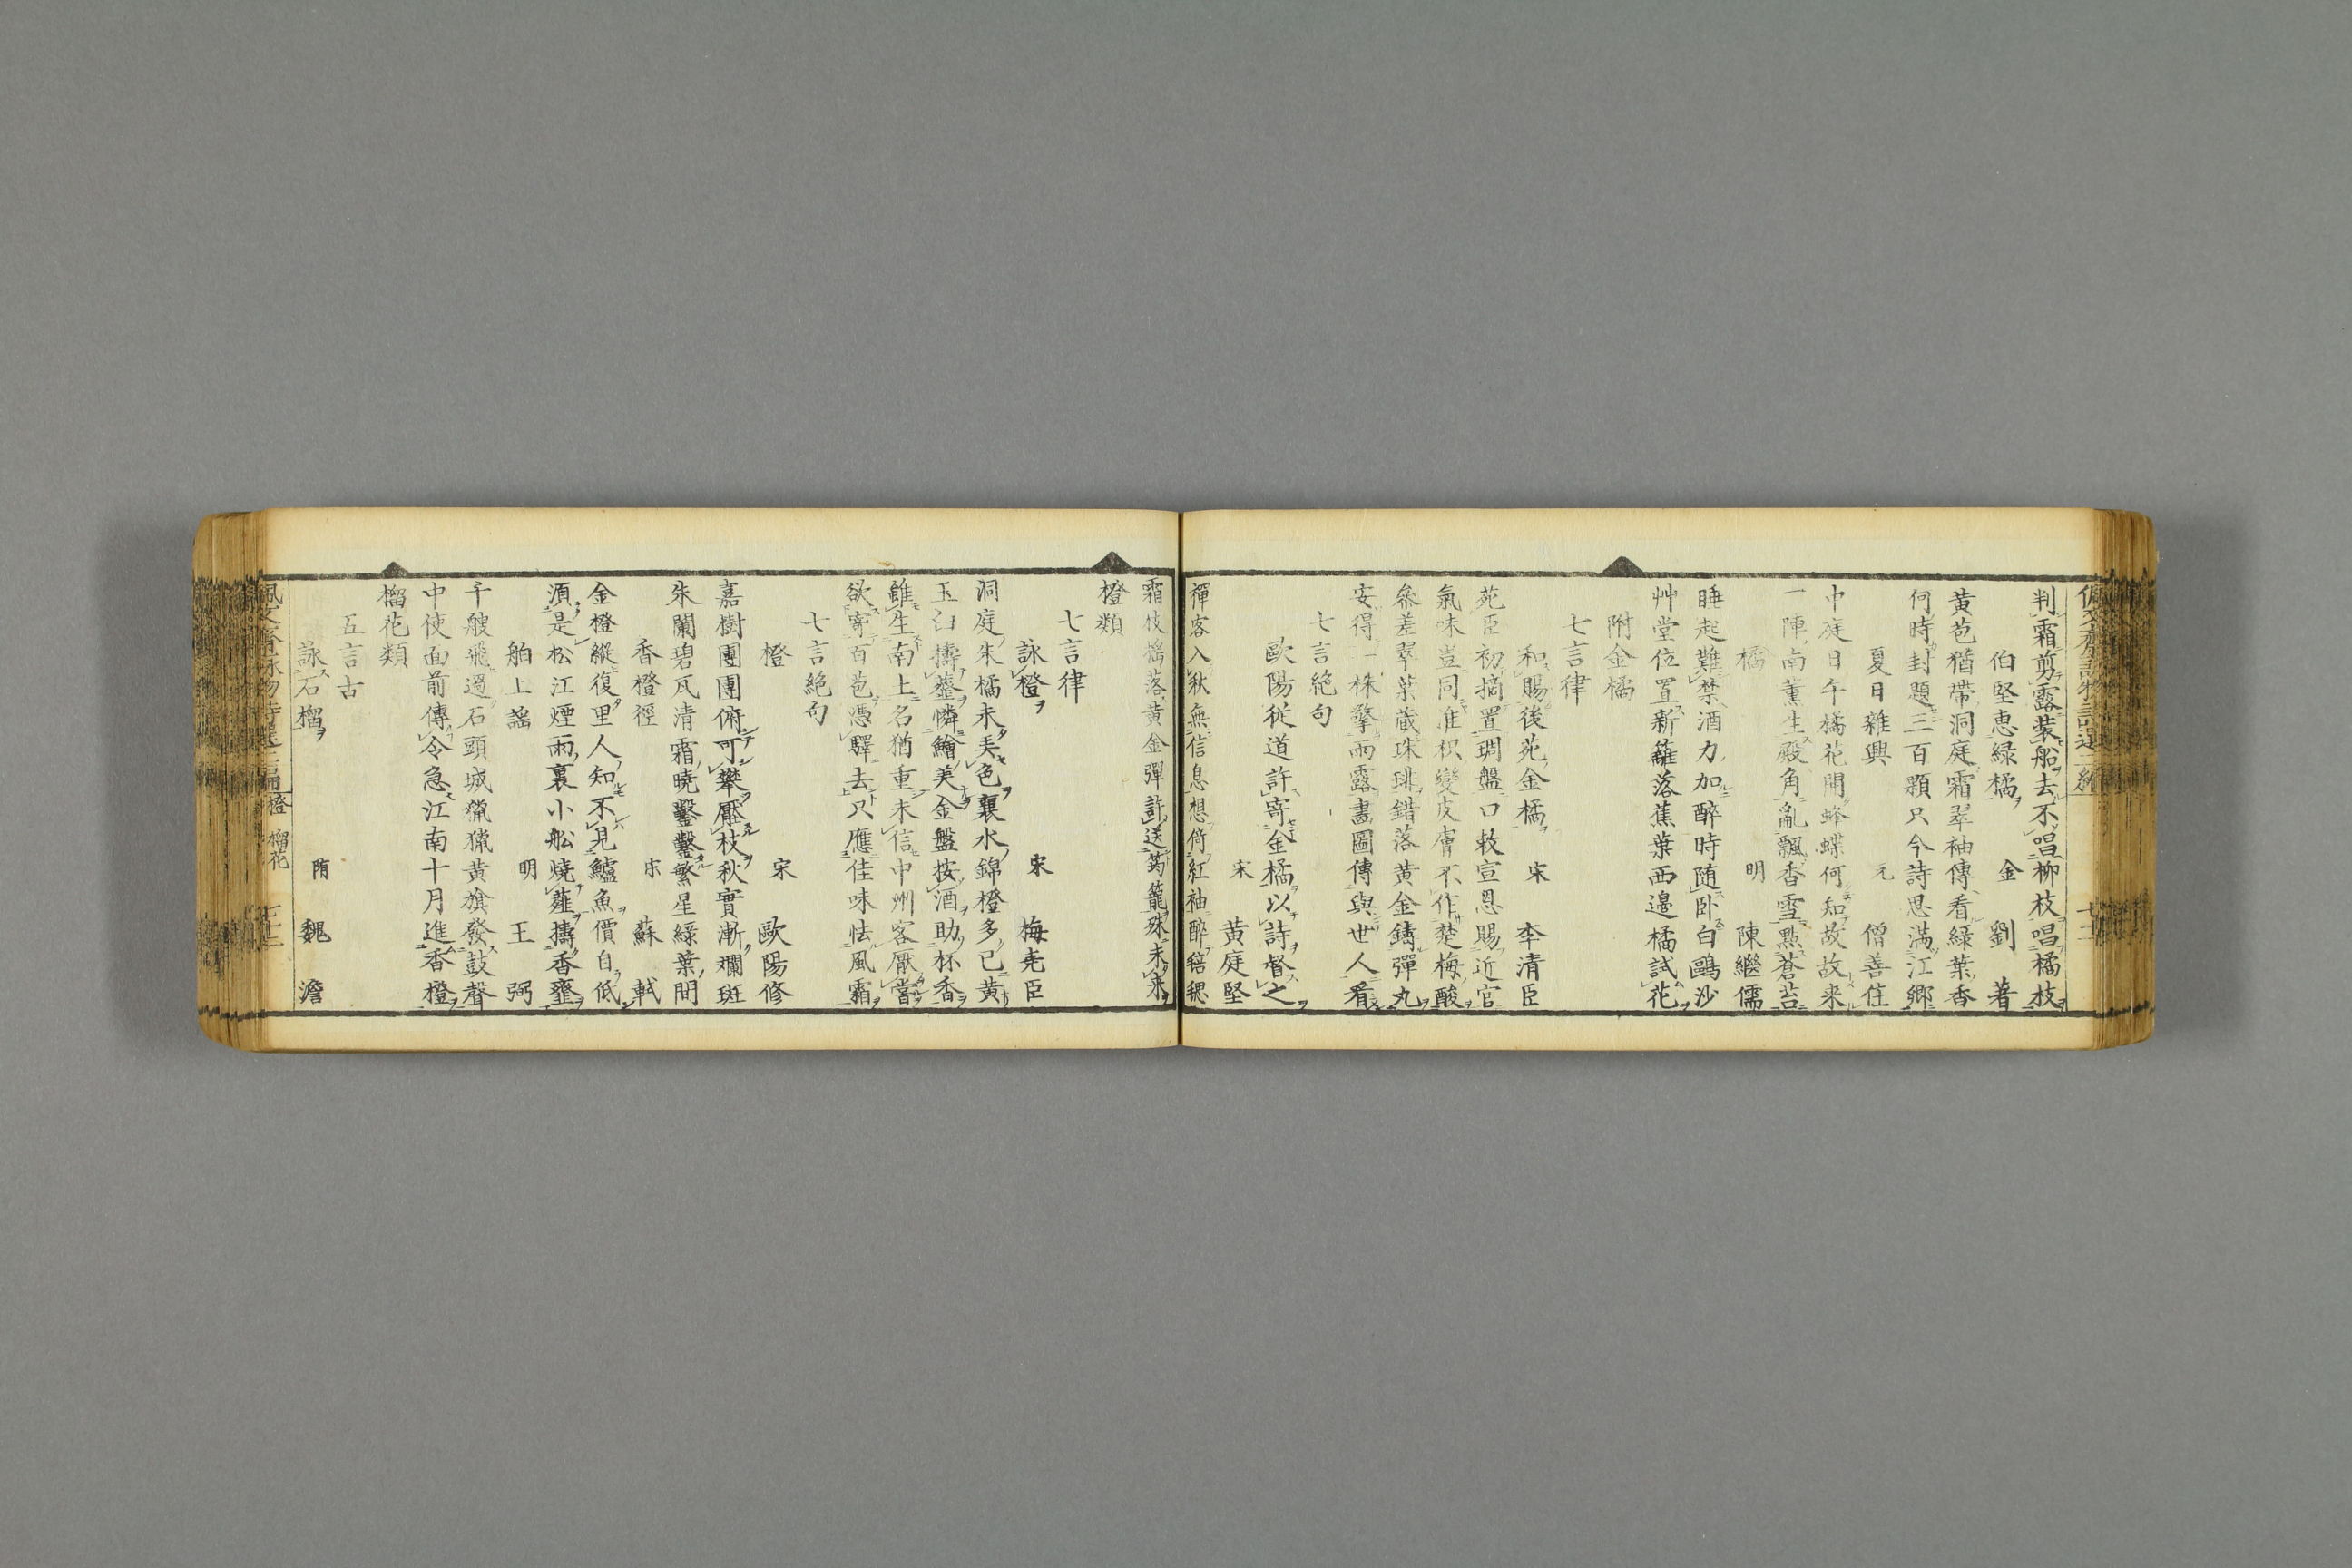 判霜剪露装船去不唱柳枝唱橘枝
伯堅惠緑橘 金 劉著
黄苞猶帶洞庭霜翠袖傳看緑葉香
何時封題三百顆只今詩思滿江郷
夏日雜興 元 僧善住
中庭日午橘花開蜂蝶何知故故来
一陣南薫生殿角亂飄香雪點蒼苔
橘 明 陳繼儒
睡起難禁酒力加醉時随卧白鷗沙
艸堂位置新籬落蕉葉西邉橘試花
附金橘
七言律
和賜後苑金橘 宋 李清臣
苑臣初摘置琱盤口敕宣恩賜近官
氣味豈同淮枳變皮膚不作楚梅酸
參差翠葉蔵珠琲錯落黄金鑄彈丸
安得一株擎雨露畫圖傳與世人看
七言絶句
歐陽従道許寄金橘以詩督之
宋 黄庭堅
禪客入秋無信息想倚紅袖醉嵇
霜枝摇落黄金彈許送筠籠殊未来
橙類
七言律
詠橙 宋 梅尭臣
洞庭朱橘未弄色襄水錦橙多已黄
玉臼擣虀憐鱠美金盤按酒助杯香
雖生南土名猶重未信中州客厭當
欲寄百苞憑驛去只應佳味怯風霜
七言絶句
橙 宋 歐陽修
嘉樹團團俯可攀壓枝秋實漸斕斑
朱闌碧瓦清霜曉鑿鑿繁星緑葉間
香橙徑 宋 蘇軾
金橙縱復里人知不見鱸魚價自低
須是松江煙雨裏小船燒薤擣香虀
舶上謡 明 王弼
千艘飛過石頭城獵獵黄旗發鼓聲
中使面前傳令急江南十月進香橙
榴花類
五言古
詠石榴 隋 魏澹
橙 榴花 七十二